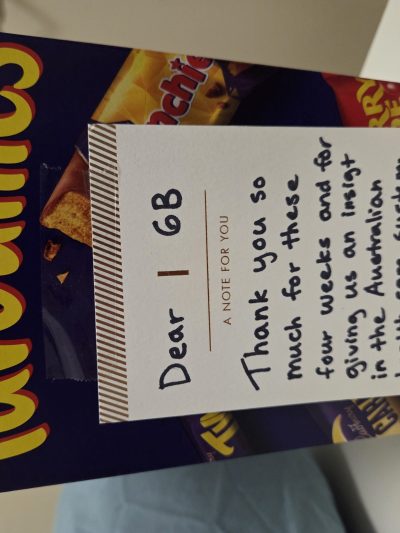 Dear 6B
A NOTE FOR YOU
Thank you so
much for these
four weeks and for
giving us an insigt
in the Australian
nchie